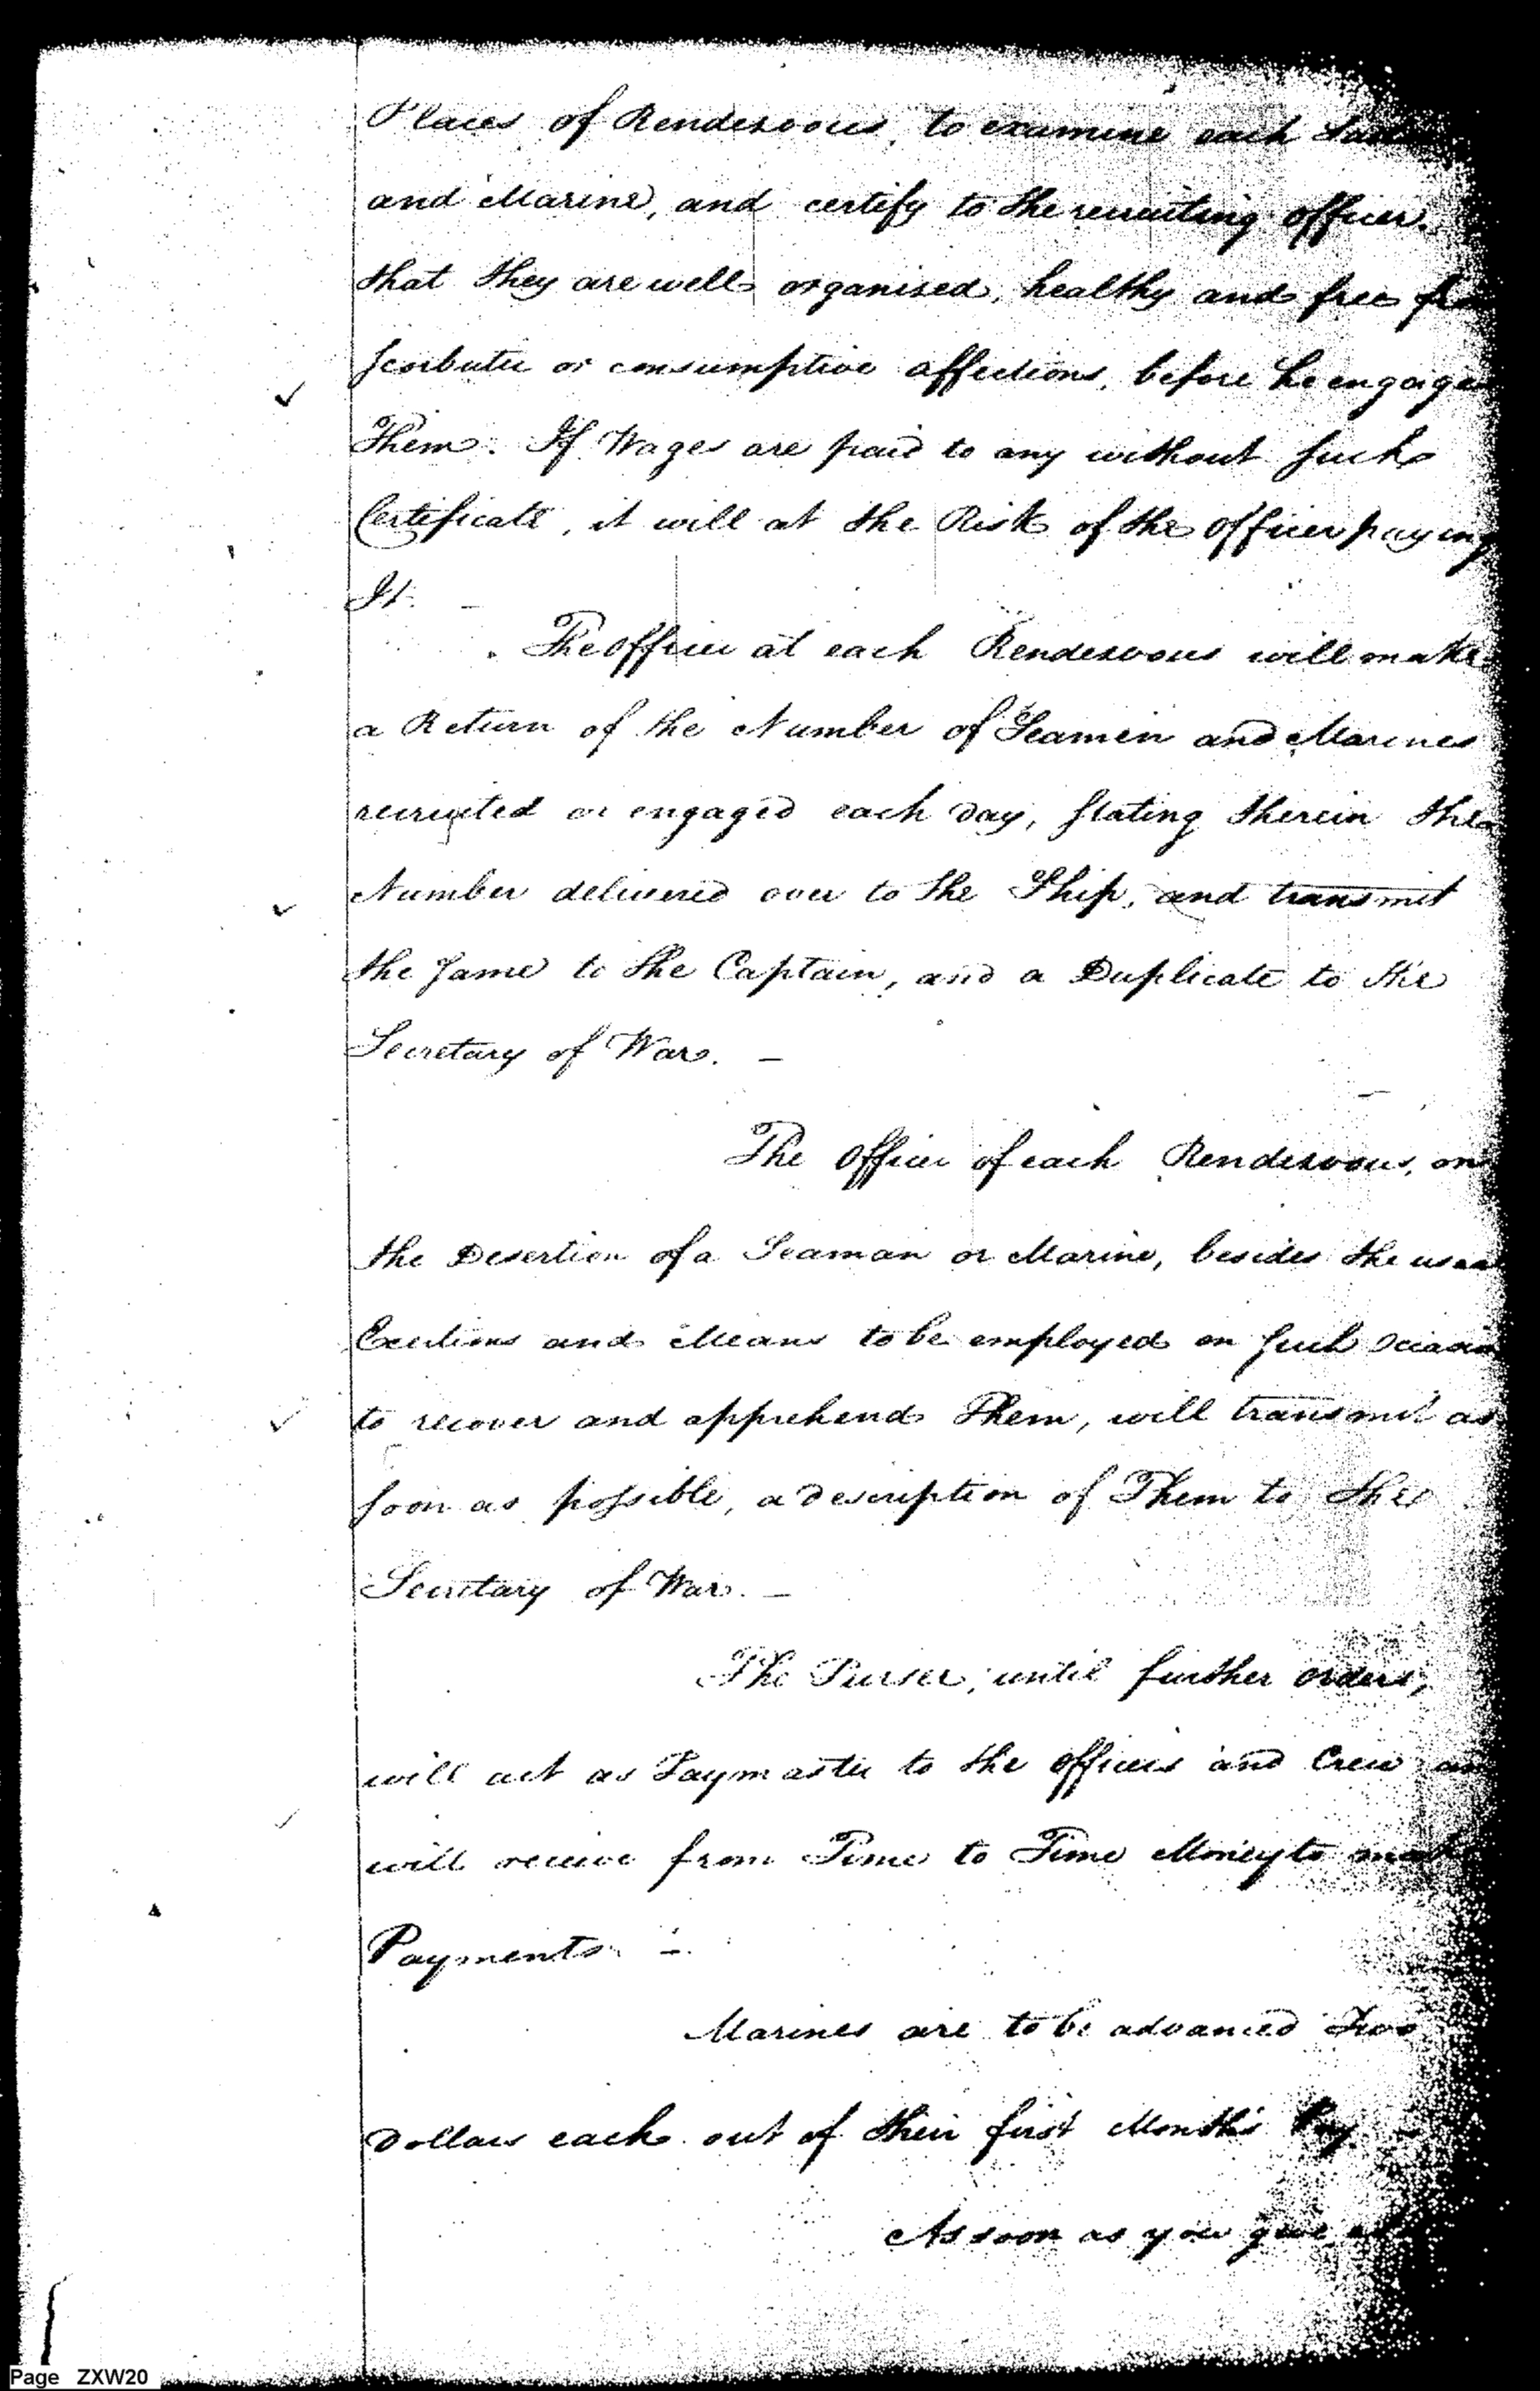 Places of Rendesvous, to examine each
and Marine, and certify to the recruiting officer.
that they are well organised, healthy and free
scorbutic or consumptive affections, before he engages
Them. If Wages are paid to any without such
Certificate, it will at the Risk of the officer paying
It. —
The officer at each Rendesvous will make
a Return of the Number of Seamen and Marines
recruited or engaged each day, stating therein the
Number delivered over to the Ship, and transmit
the same to the Captain, and a Duplicate to the
Secretary of War. —
The officer of each Rendesvous, on
the Desertion of a Seaman or Marine, besides the
Exertions and Means to be employed on such
to recover and apprehend Them, will transmit as
soon as possible, a description of Them to the
Secretary of War. —
The Purser, until further orders,
will act as Paymaster to the officers and Crew
will receive from Time to Time Money to make
Payments. —
Marines are to be advanced Two
Dollars each out of their first Month's Pay
As soon as you give
Page ZXW20